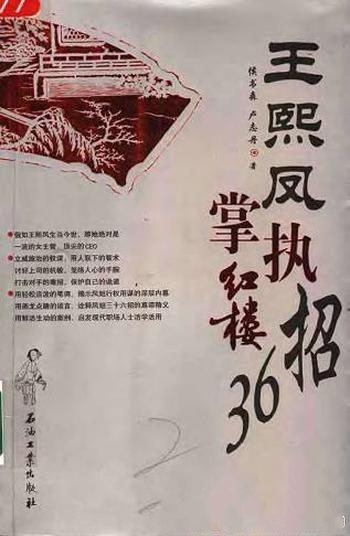 王熙凤执
掌红楼
36招
侯书森 卢志丹 著
假如王熙凤生当今世，那她绝对是
一流的女主管、顶尖的CEO
立威施治的权谋，用人驭下的着术
讨好上司的机敏，笼络人心的手腕
打击对手的毒招，保护自己的诡道
用轻松活泼的笔调，揭示凤姐行权用谋的深层内幕
用画龙点睛的语言，诠释凤姐三十六招的真谛精义
用鲜活生动的案例，启发现代职场人士活学活用
石油工业出版社